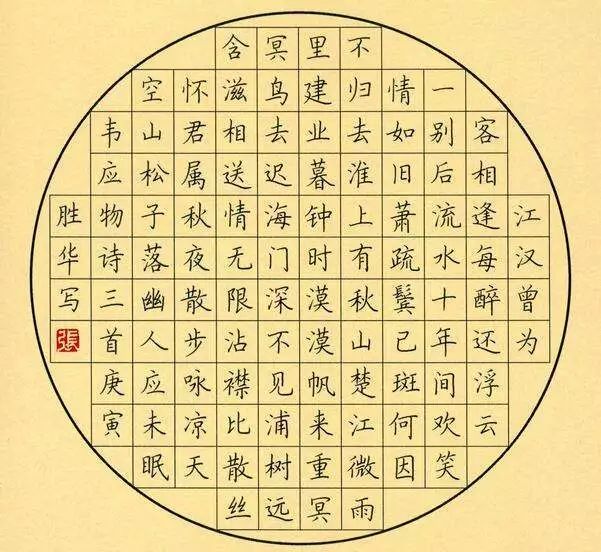 江汉曾为
客相逢每醉还浮云
一别后流水十年间欢笑
情如旧萧疏鬓已斑何因
不归去淮上有秋山楚江微雨
里建业暮钟时漠漠帆来重冥
冥鸟去迟海门深不见浦树远
含滋相送情无限沾襟比散丝
怀君属秋夜散步咏凉天
空山松子落幽人应未眠
韦应物诗三首庚寅
胜华写
張